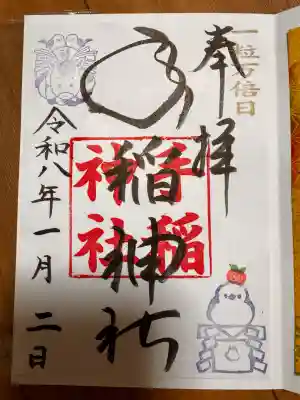 一粒万倍日
奉拝
手稲神社
手稲
神社
令和八年一月二日